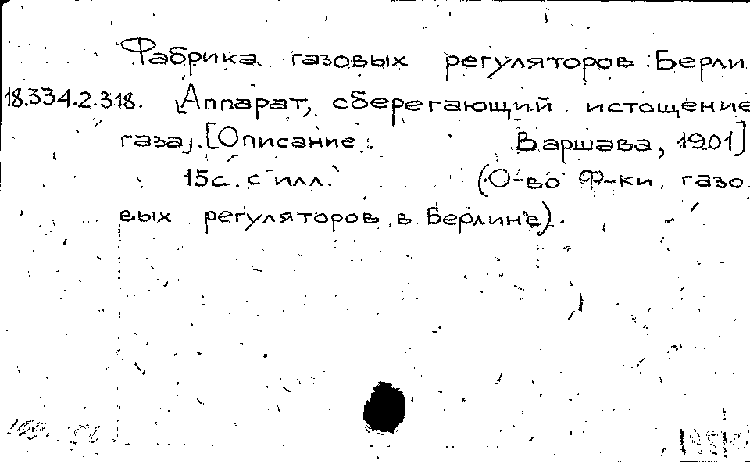 Фабрика газовых регуляторов Берли
18.334.2.318. Аппарат, сберегающий истощение
газа. [Описание. Варшава, 1901]
15с. с илл. (О-во Ф-ки газо
вых регуляторов в Берлинѣ).